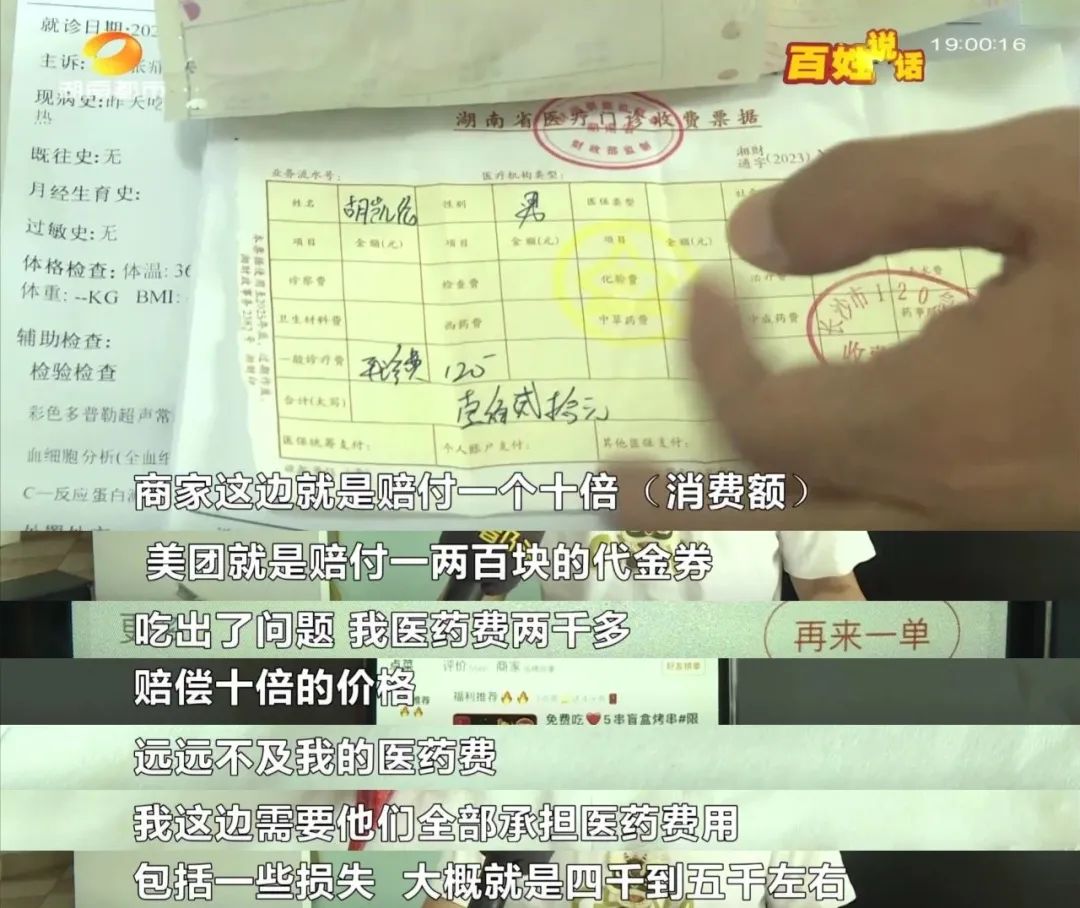 就诊日期:202
主诉:
现病史:昨天吃
热
既往史:无
月经生育史:
过敏史:无
体格检查:体温:36
体重:--KG BMI:
辅助检查:
检验检查
彩色多普勒超声常
血细胞分析(全血细
C—反应蛋白
湖南都市
百姓说话
19:00:16
湖南省医疗门诊收费票据
财政部监制
湘财
通字(2023)
业务流水号:
医疗机构类型:
姓名 性别 男 医保类型
项目 金额(元) 项目 金额(元) 项目 金额(元)
诊察费 检查费 化验费 治疗费
卫生材料费 西药费 中草药费 中成药费
一般诊疗费 120
合计(大写) 壹佰贰拾元
医保统筹支付: 个人账户支付: 其他医保支付:
长沙市120急
商家这边就是赔付一个十倍(消费额)
美团就是赔付一两百块的代金券
吃出了问题 我医药费两千多
再来一单
赔偿十倍的价格
点菜 评价 商家
好友拼单
福利推荐
免费吃❤5串盲盒烤串#限
远远不及我的医药费
我这边需要他们全部承担医药费用
包括一些损失 大概就是四千到五千左右